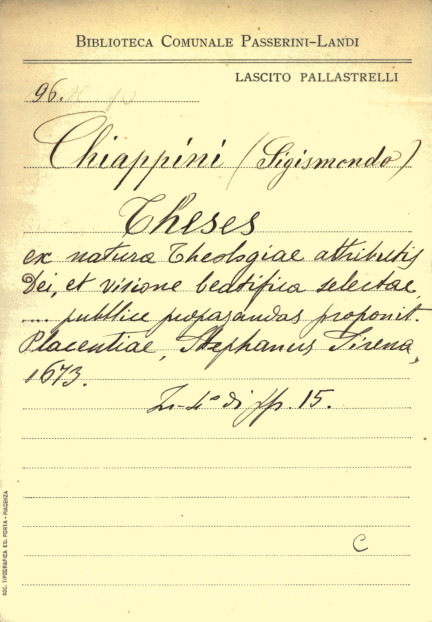 BIBLIOTECA COMUNALE PASSERINI-LANDI
LASCITO PALLASTRELLI
96.
Chiappini (Sigismondo)
Theses
ex natura Theologiae attributis
Dei, et visione beatifica selectae,
.... publice propagandas proponit.
Placentiae, Stephanus Sirena,
1673.
In-4° di pp. 15.
C
SOC. TIPOGRAFICA ED. PORTA - PIACENZA